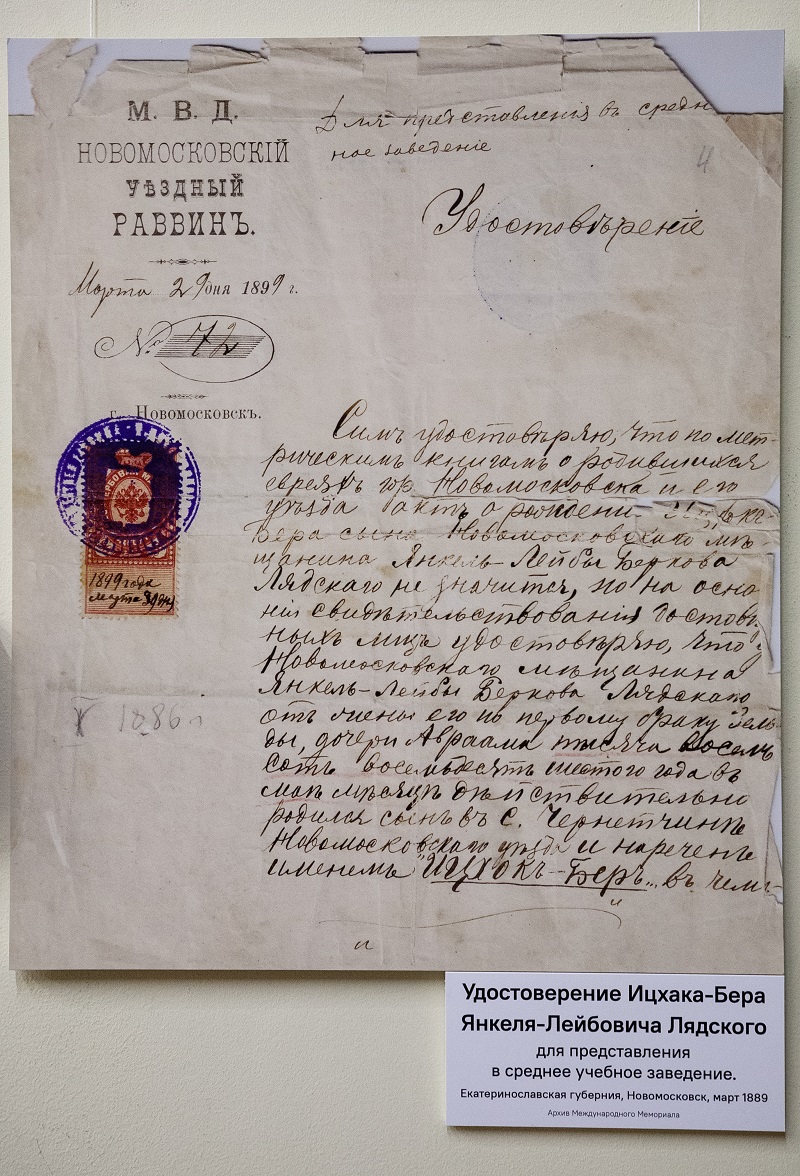 М. В. Д.
НОВОМОСКОВСКІЙ
УѢЗДНЫЙ
РАВВИНЪ.
Марта 29 дня 1899 г.
№ 72
г. Новомосковскъ.
Для представленія въ средн
ное заведеніе
4
Удостовѣреніе
Симъ удостовѣряю, что по мет-
рическимъ книгамъ о родившихся
евреяхъ гор. Новомосковска и его
уѣзда фактъ о рожденi
Бера сына Новомосковскаго мѣ-
щанина Янкель-Лейбы Беркова
Лядскаго не значится, но на осно
нія свидѣтельствованія достовѣ
ныхъ лицъ удостовѣряю, что у
Новомосковскаго мѣщанина
Янкель-Лейбы Беркова Лядскаго
отъ жены его по первому браку Зель-
ды, дочери Авраама тысяча восемь
сотъ восемьдесятъ шестого года въ
маѣ мѣсяцѣ дѣйствительно
родился сынъ въ с. Чернетчинѣ
Новомосковскаго уѣзда и нареченъ
именемъ "Ицхокъ-Беръ" въ чемъ
и
1899 года
Марта 29 дня
V 1886 г
Удостоверение Ицхака-Бера
Янкеля-Лейбовича Лядского
для представления
в среднее учебное заведение.
Екатеринославская губерния, Новомосковск, март 1889
Архив Международного Мемориала